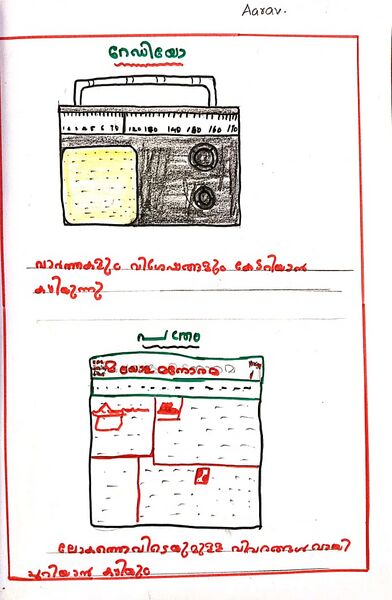 Aarav.
റേഡിയോ
വാർത്തകളും വിശേഷങ്ങളും കേട്ടറിയാൻ
കഴിയുന്നു
പത്രം
മലയാള മനോരമ
ലോകത്തെവിടെയുമുള്ള വിവരങ്ങൾ വായി
ച്ചറിയാൻ കഴിയും